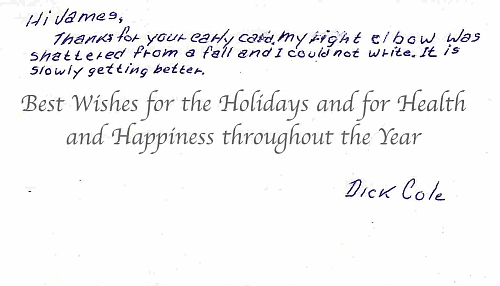 Hi James,
Thanks for your early card. my right elbow was
shattered from a fall and I could not write. It is
slowly getting better.
Best Wishes for the Holidays and for Health
and Happiness throughout the Year
Dick Cole